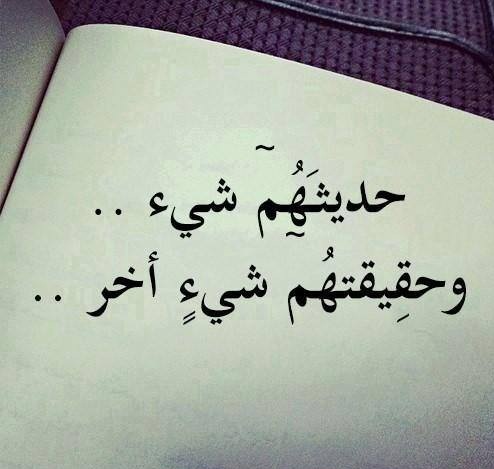 حديثـَهُِمۤ شيء ..
وحقِيقتهُمۤ شيءٍ أخر ..